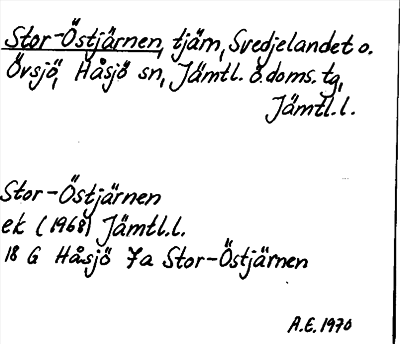 Stor-Östjärnen, tjäm, Svedjelandet o.
Övsjö, Håsjö sn, Jämtl. ö. doms. tg,
Jämtl.l.
Stor-Östjärnen
ek (1968) Jämtl.l.
18 G Håsjö 7a Stor-Östjärnen
A.E. 1970